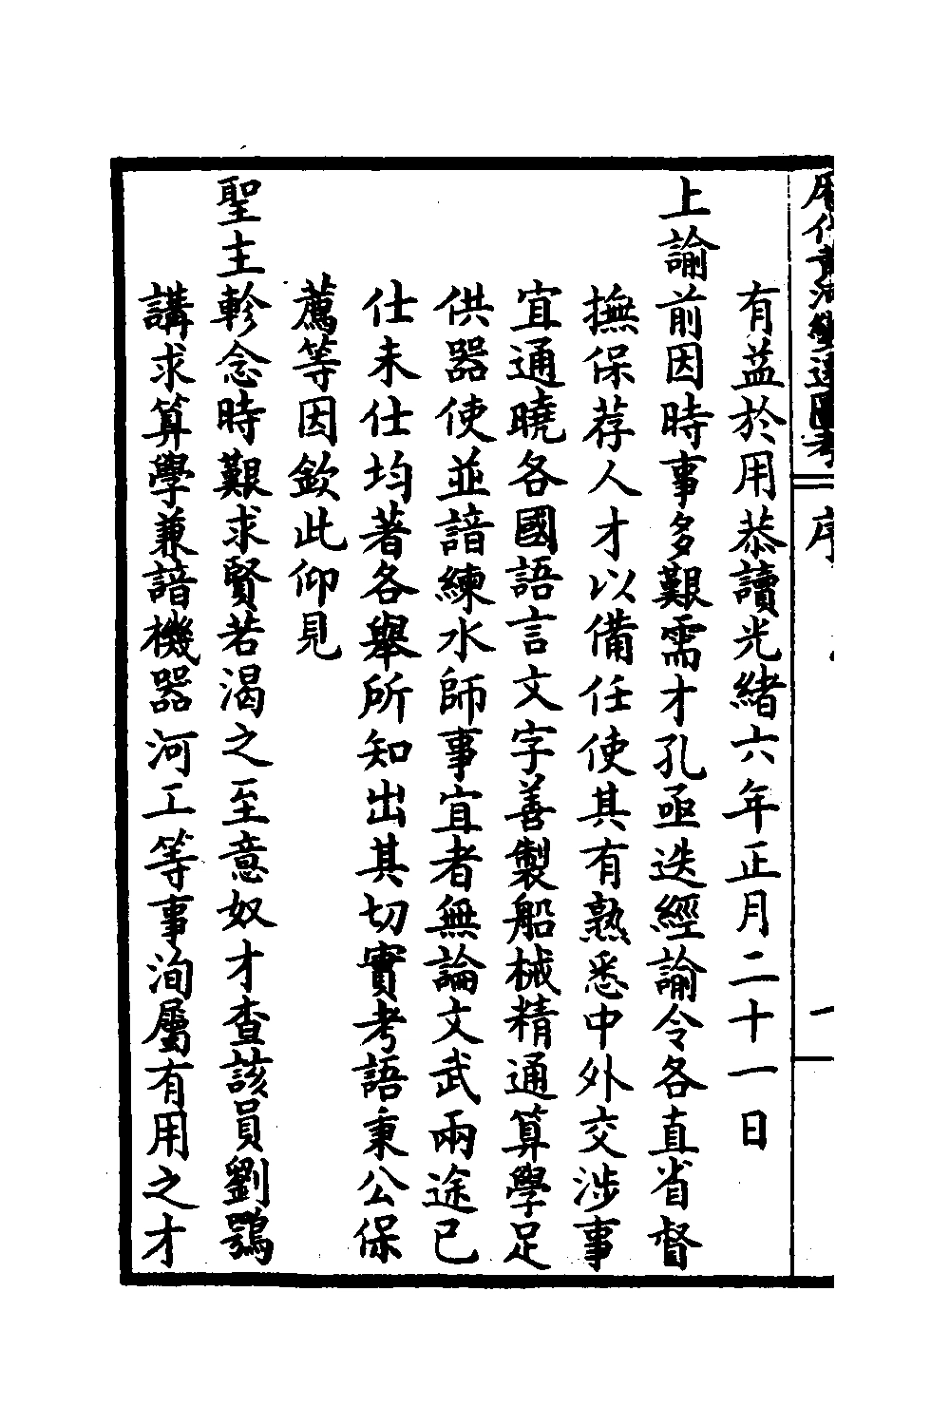 歷代黃河變遷圖考
序
一
有益於用恭讀光緒六年正月二十一日
上諭前因時事多艱需才孔亟迭經諭令各直省督
撫保荐人才以備任使其有熟悉中外交涉事
宜通曉各國語言文字善製船械精通算學足
供器使並諳練水師事宜者無論文武兩途已
仕未仕均著各舉所知出其切實考語秉公保
薦等因欽此仰見
聖主軫念時艱求賢若渴之至意奴才查該員劉鶚
講求算學兼諳機器河工等事洵屬有用之才